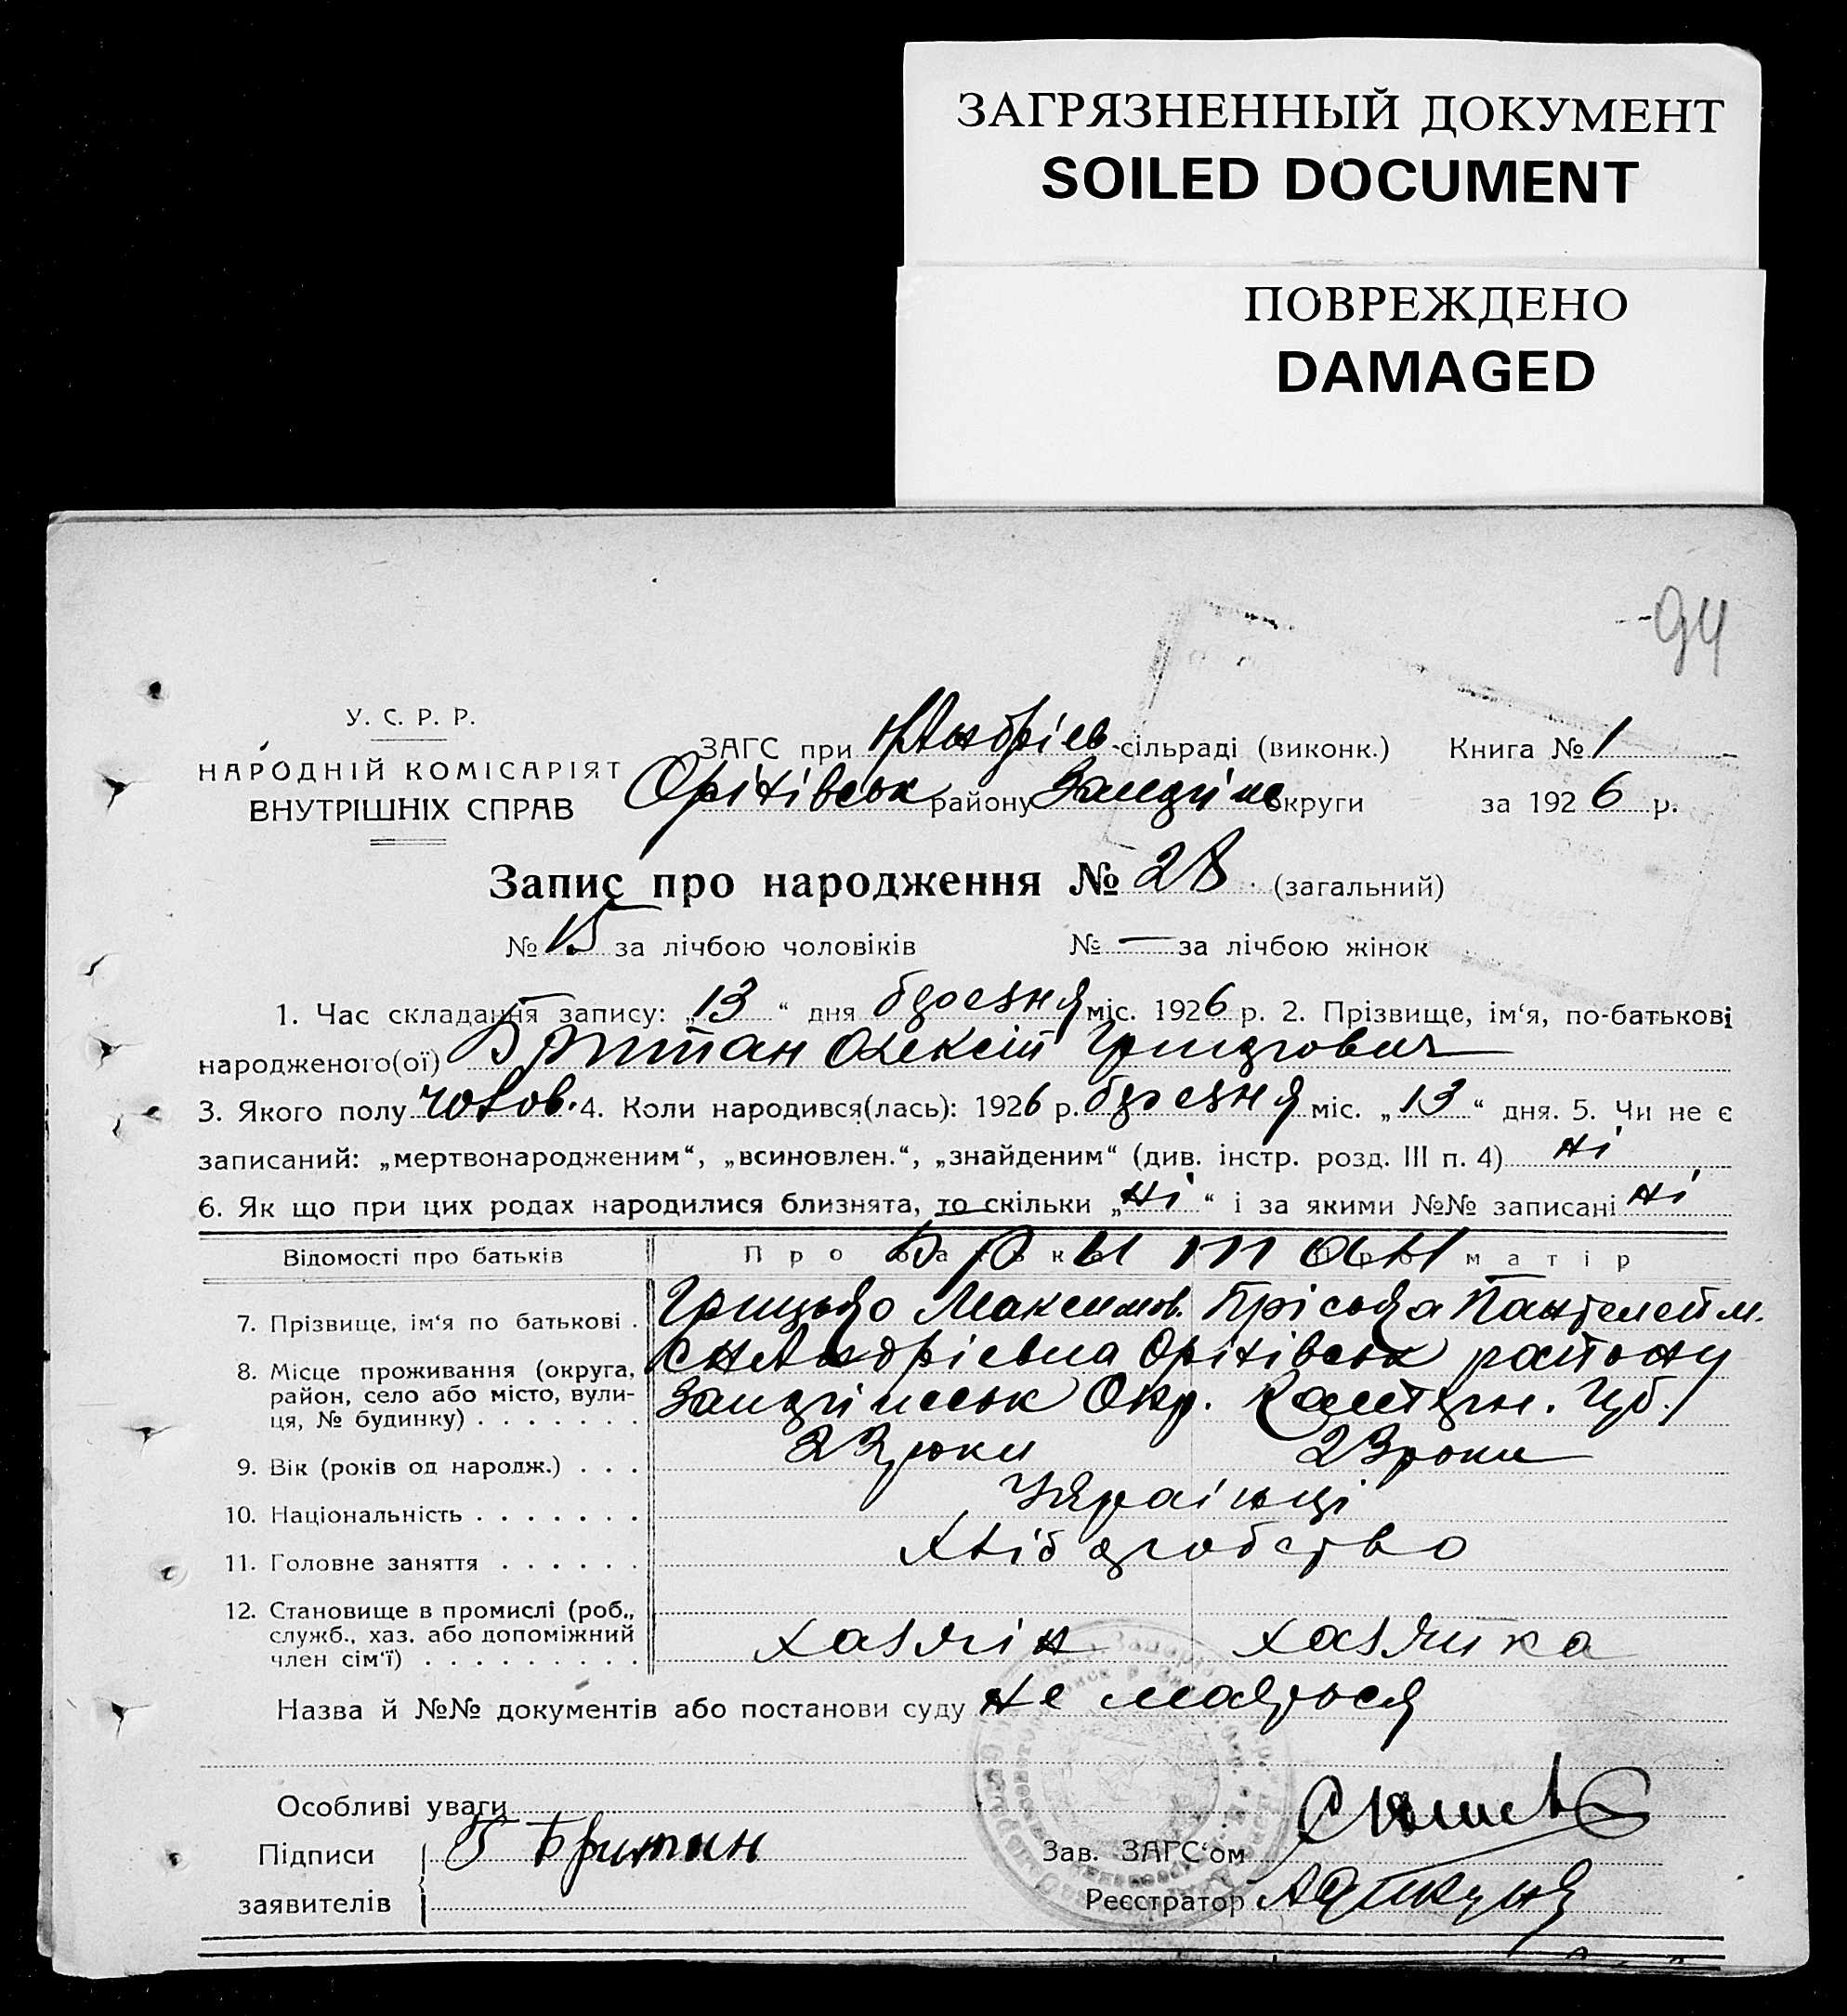 ЗАГРЯЗНЕННЫЙ ДОКУМЕНТ
SOILED DOCUMENT
ПОВРЕЖДЕНО
DAMAGED
94
У. С. Р. Р.
НАРОДНІЙ КОМІСАРІЯТ
ВНУТРІШНІХ СПРАВ
ЗАГС при сільраді (виконк.) Книга № 1
Оріхівськ району округи за 1926 р.
Запис про народження № 28 (загальний)
№ 15 за лічбою чоловіків № — за лічбою жінок
1. Час складання запису: „13“ дня березня міс. 1926 р. 2. Прізвище, ім‘я, по-батькові
народженого(ої) Британ Олексій Грицкович
3. Якого полу чолов. 4. Коли народився(лась): 1926 р. березня міс. „13“ дня. 5. Чи не є
записаний: „мертвонародженим“, „всиновлен.“, „знайденим“ (див. інстр. розд. III п. 4) Ні
6. Як що при цих родах народилися близнята, то скільки „Ні“ і за якими №№ записані Ні
Відомості про батьків Про батька Про матір
Британ
7. Прізвище, ім‘я по батькові . Грицько Максимов. Пріська Пантелейм.
8. Місце проживання (округа, Оріхівськ району
район, село або місто, вули- Окр. Губ.
ця, № будинку) . . . . . . .
9. Вік (років од народж.) . . . 23 роки 23 роки
10. Національність . . . . . . . Українці
11. Головне заняття . . . . . . Хліборобство
12. Становище в промислі (роб.,
служб., хаз. або допоміжний
член сім‘ї) . . . . . . . . . хазяїн хазяйка
Назва й №№ документів або постанови суду не маються
Особливі уваги
Підписи Г Британ Зав. ЗАГС‘ом
заявителів Реєстратор